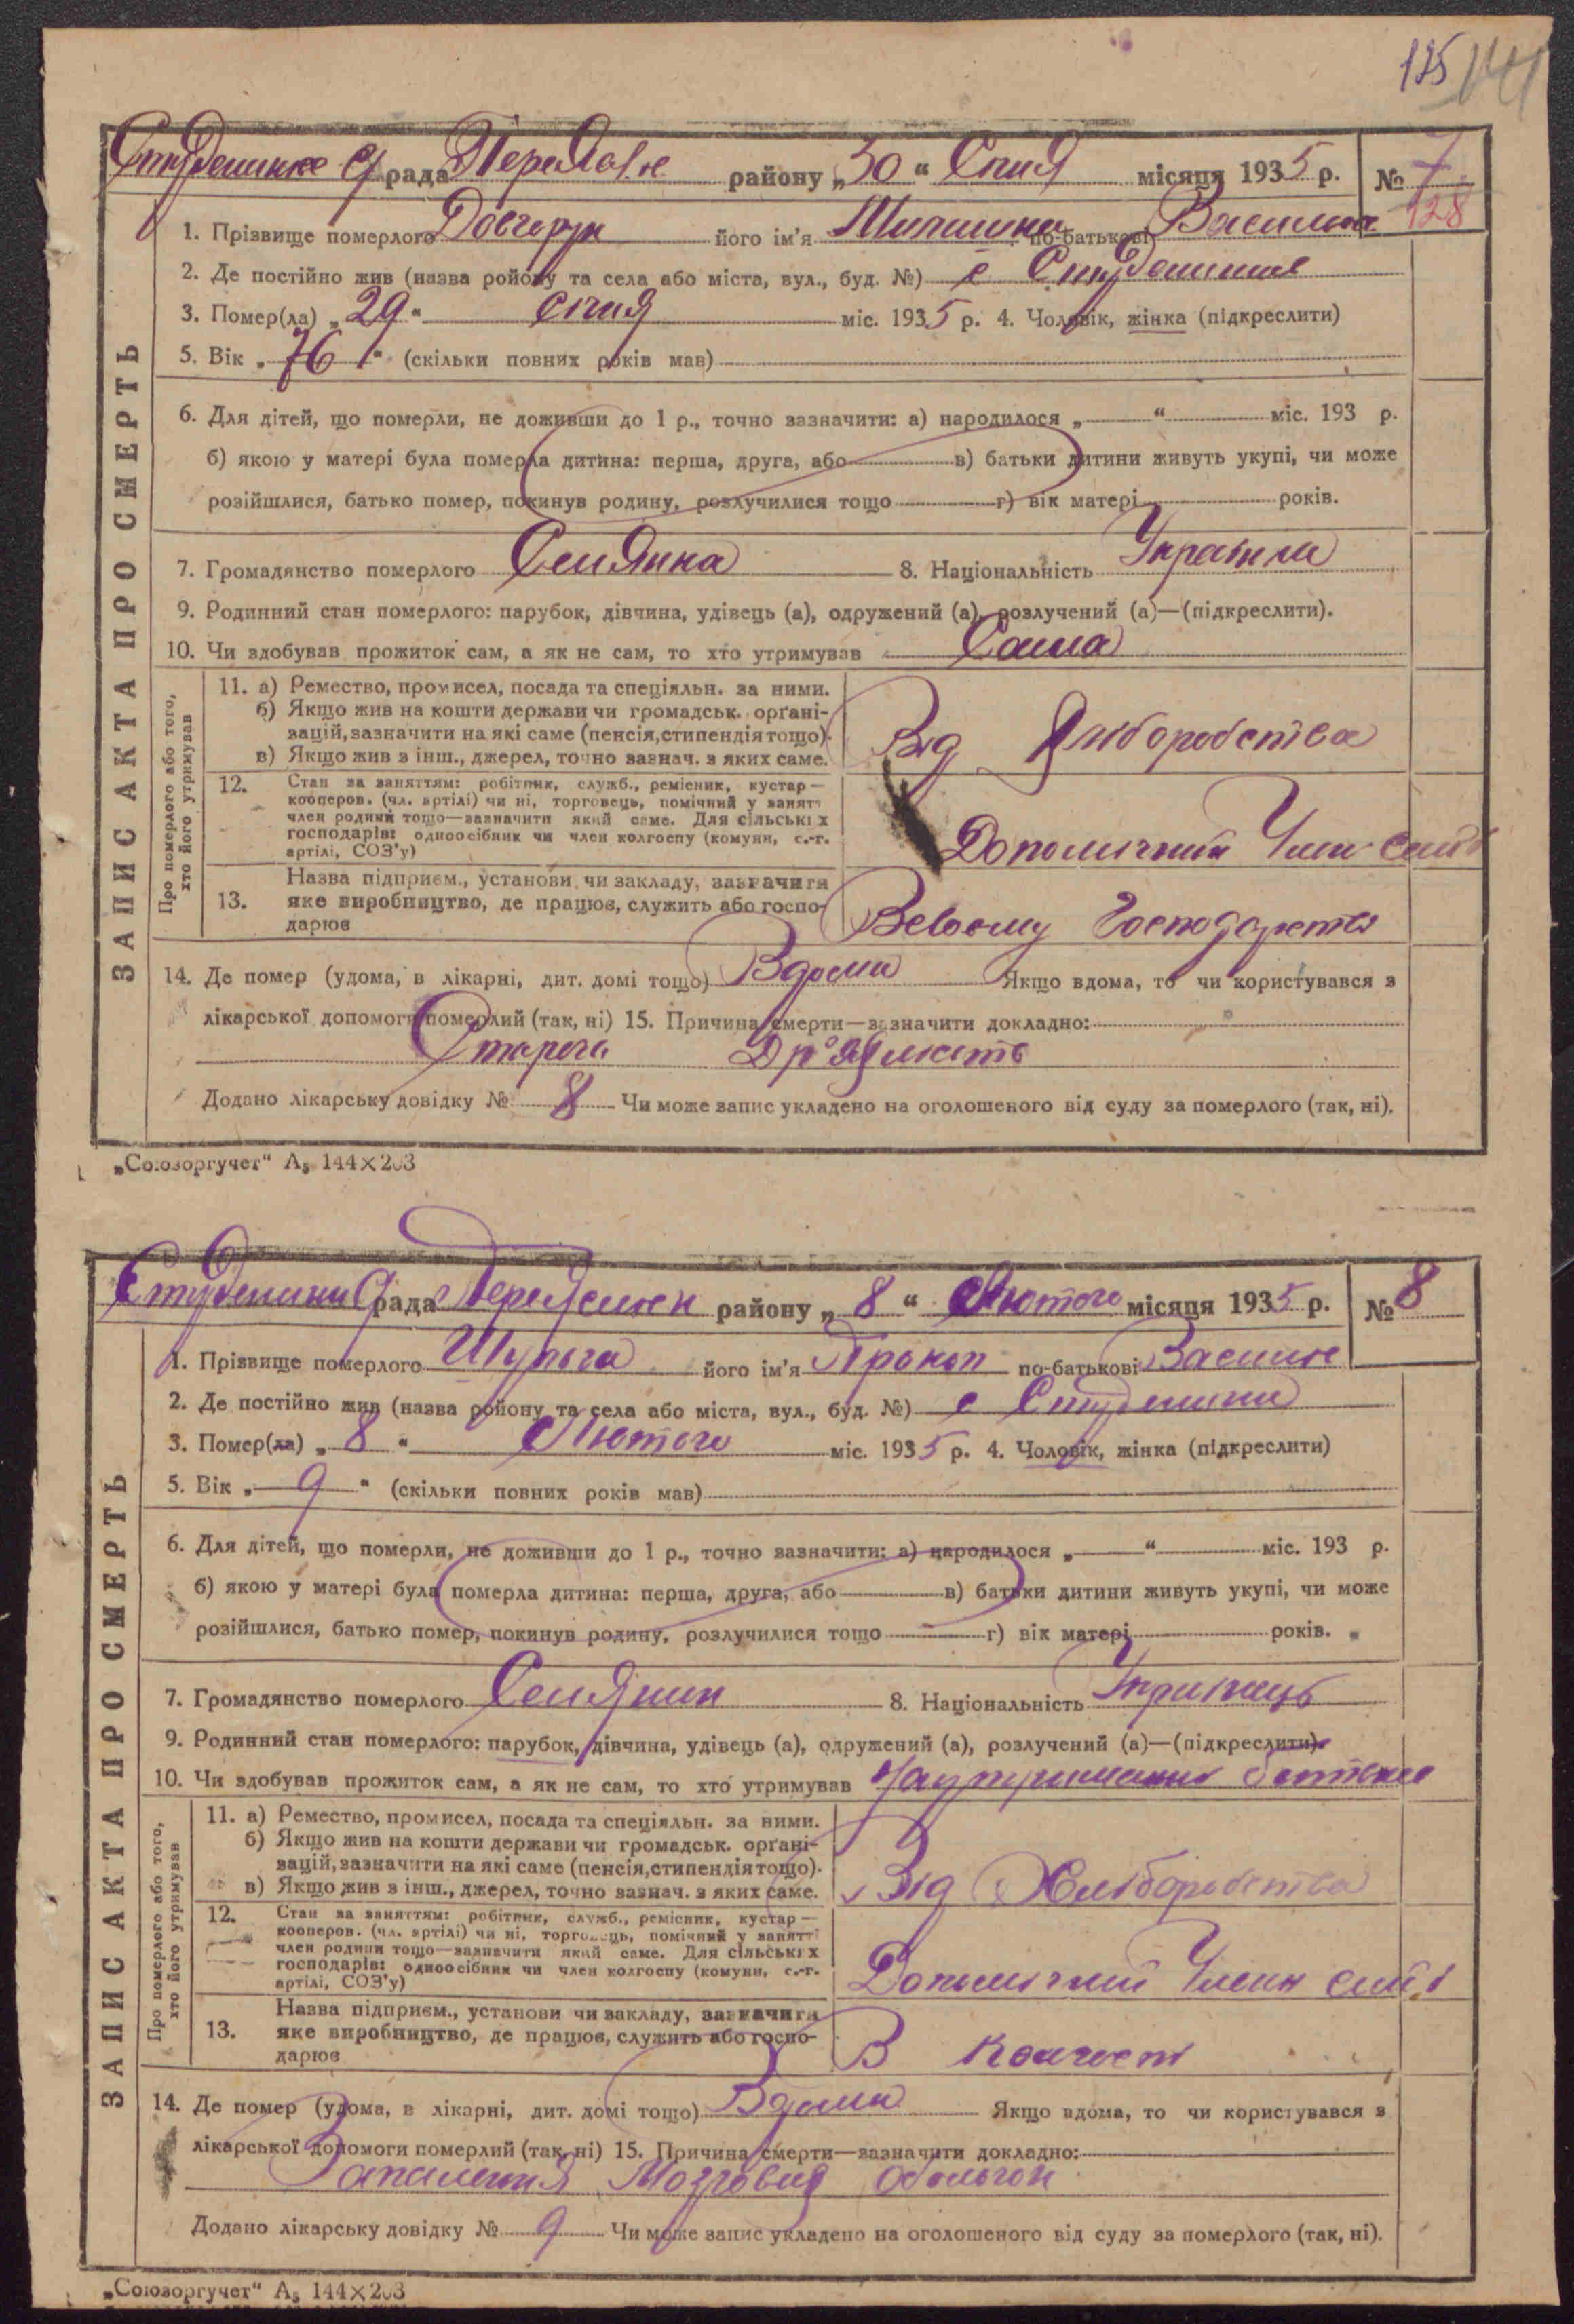 125 141
рада району „30“ Січня місяця 1935 р. № 7
128
1. Прізвище померлого Довгорук його ім'я по-батькові Василів
2. Де постійно жив (назва ройону та села або міста, вул., буд. №) с
3. Помер(ла) „29“ Січня міс. 1935 р. 4. Чоловік, жінка (підкреслити)
5. Вік „76“ (скільки повних років мав)
6. Для дітей, що померли, не доживши до 1 р., точно зазначити: а) народилося „ “ міс. 193 р.
б) якою у матері була померла дитина: перша, друга, або в) батьки дитини живуть укупі, чи може
розійшлися, батько помер, покинув родину, розлучилися тощо г) вік матері років.
7. Громадянство померлого Селянка 8. Національність
9. Родинний стан померлого: парубок, дівчина, удівець (а), одружений (а), розлучений (а)—(підкреслити).
10. Чи здобував прожиток сам, а як не сам, то хто утримував Сама
ЗАПИС АКТА ПРО СМЕРТЬ
Про померлого або того,
хто його утримував
11. а) Ремество, промисел, посада та спеціяльн. за ними.
б) Якщо жив на кошти держави чи громадськ. орґані-
зацій, зазначити на які саме (пенсія, стипендія тощо).
в) Якщо жив з інш., джерел, точно зазнач. з яких саме.
Від Хліборобства
12. Стан за заняттям: робітник, служб., ремісник, кустар—
кооперов. (чл. артілі) чи ні, торговець, помічний у занятт
член родини тощо—зазначити який саме. Для сільських
господарів: одноосібник чи член колгоспу (комуни, с.-г.
артілі, СОЗ'у)
Допомічний Член сімї
13. Назва підприєм., установи чи закладу, зазначити
яке виробництво, де працює, служить або госпо-
дарює
Всвоему Господарстві
14. Де помер (удома, в лікарні, дит. домі тощо) Вдома Якщо вдома, то чи користувався з
лікарської допомоги померлий (так, ні) 15. Причина смерти—зазначити докладно:
Стареча
Додано лікарську довідку № 8 Чи може запис укладено на оголошеного від суду за померлого (так, ні).
„Союзоргучет“ А5 144×203
рада району „8“ Лютого місяця 1935 р. № 8
1. Прізвище померлого Шульга його ім'я Прокоп по-батькові
2. Де постійно жив (назва ройону та села або міста, вул., буд. №) с
3. Помер(ла) „8“ Лютого міс. 1935 р. 4. Чоловік, жінка (підкреслити)
5. Вік „9“ (скільки повних років мав)
6. Для дітей, що померли, не доживши до 1 р., точно зазначити: а) народилося „ “ міс. 193 р.
б) якою у матері була померла дитина: перша, друга, або в) батьки дитини живуть укупі, чи може
розійшлися, батько помер, покинув родину, розлучилися тощо г) вік матері років.
7. Громадянство померлого Селянин 8. Національність Українець
9. Родинний стан померлого: парубок, дівчина, удівець (а), одружений (а), розлучений (а)—(підкреслити).
10. Чи здобував прожиток сам, а як не сам, то хто утримував
ЗАПИС АКТА ПРО СМЕРТЬ
Про померлого або того,
хто його утримував
11. а) Ремество, промисел, посада та спеціяльн. за ними.
б) Якщо жив на кошти держави чи громадськ. орґані-
зацій, зазначити на які саме (пенсія, стипендія тощо).
в) Якщо жив з інш., джерел, точно зазнач. з яких саме.
Від Хліборобства
12. Стан за заняттям: робітник, служб., ремісник, кустар—
кооперов. (чл. артілі) чи ні, торговець, помічний у занятті
член родини тощо—зазначити який саме. Для сільських
господарів: одноосібник чи член колгоспу (комуни, с.-г.
артілі, СОЗ'у)
Допомічний Член сімї
13. Назва підприєм., установи чи закладу, зазначити
яке виробництво, де працює, служить або госпо-
дарює
В колгоспі
14. Де помер (удома, в лікарні, дит. домі тощо) Вдома Якщо вдома, то чи користувався з
лікарської допомоги померлий (так, ні) 15. Причина смерти—зазначити докладно:
Запалення Мозгових оболочок
Додано лікарську довідку № 9 Чи може запис укладено на оголошеного від суду за померлого (так, ні).
„Союзоргучет“ А5 144×203